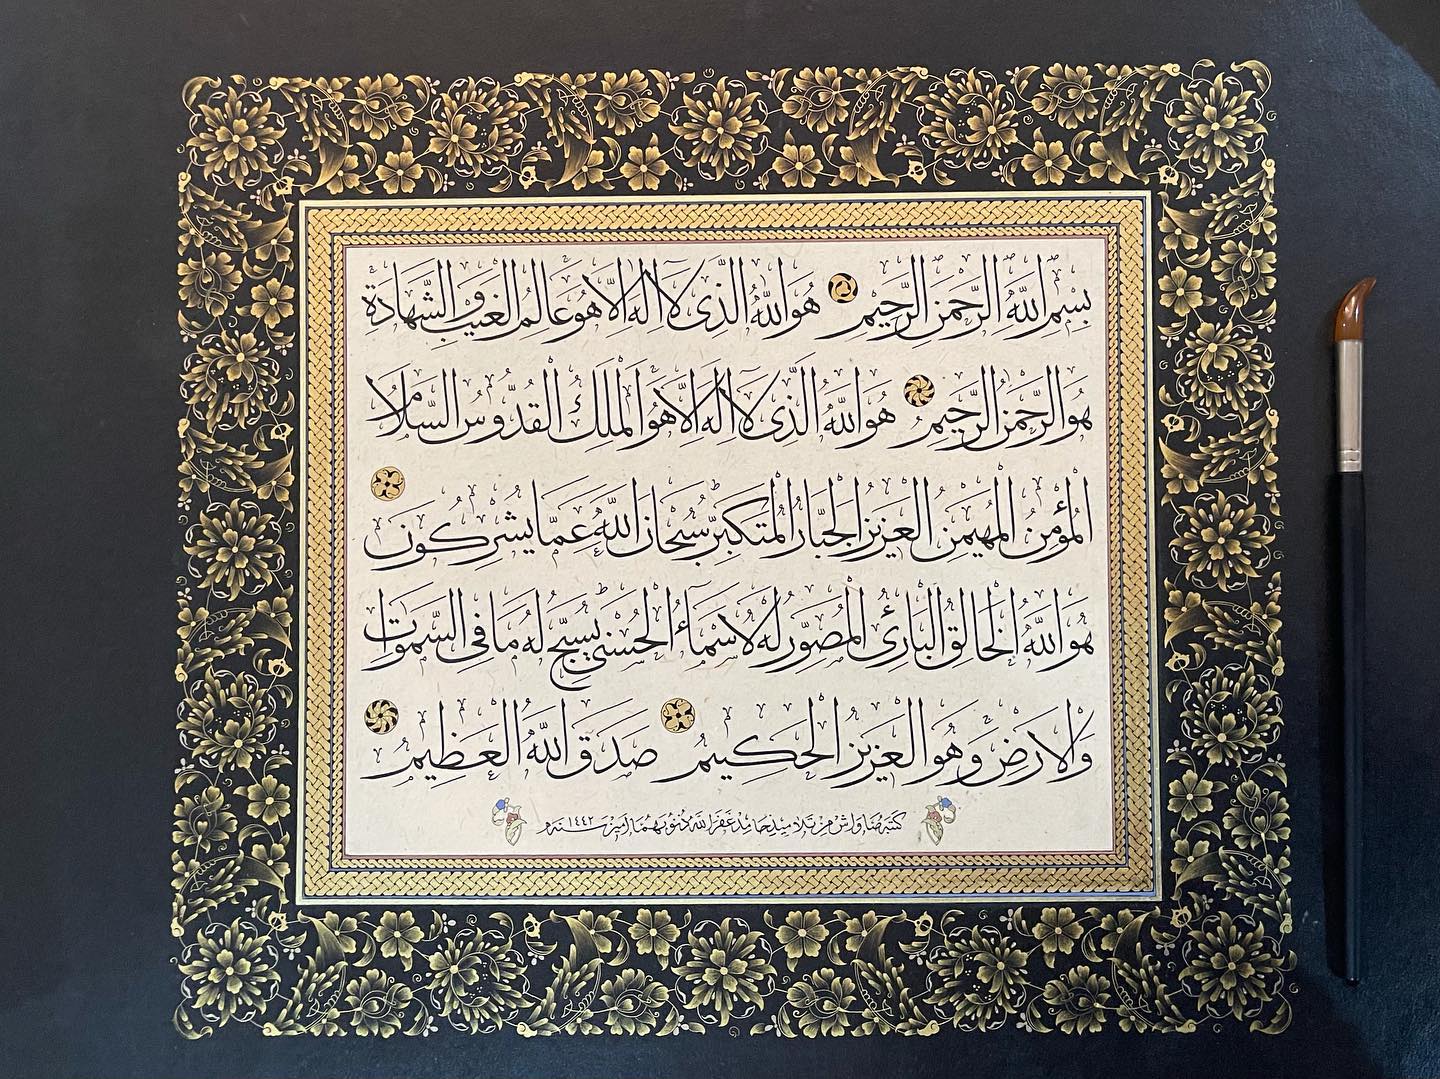 بسم الله الرحمن الرحيم هو الله الذى لا اله الا هو عالم الغيب والشهادة
هو الرحمن الرحيم هو الله الذى لا اله الا هو الملك القدوس السلام
المؤمن المهيمن العزيز الجبار المتكبر سبحان الله عما يشركون
هو الله الخالق البارئ المصور له الاسماء الحسنى يسبح له ما فى السموات
والارض وهو العزيز الحكيم صدق الله العظيم
كتبه من تلاميذ حامد غفر الله ذنوبهما امين سنه ١٤٤٢